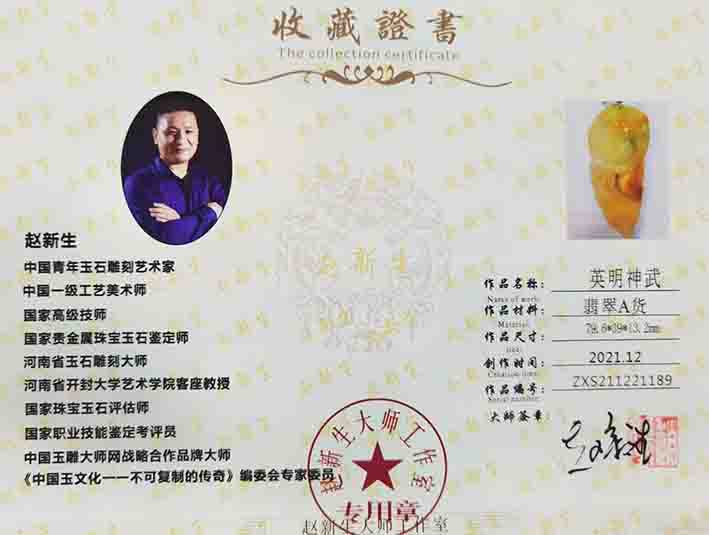 收藏證書
The collection certificate
赵新生
中国青年玉石雕刻艺术家
中国一级工艺美术师
国家高级技师
国家贵金属珠宝玉石鉴定师
河南省玉石雕刻大师
河南省开封大学艺术学院客座教授
国家珠宝玉石评估师
国家职业技能鉴定考评员
中国玉雕大师网战略合作品牌大师
《中国玉文化一一不可复制的传奇》编委会专家委员
赵新生
作品名称： 英明神武
Name of work:
作品材料： 翡翠A货
Material:
作品尺寸： 79.6*39*13.2mm
size:
创作时间： 2021.12
Creation time:
作品编号： ZXS211221189
Serial number:
大师签章：
赵新生大师工作室
专用章
赵新生大师工作室